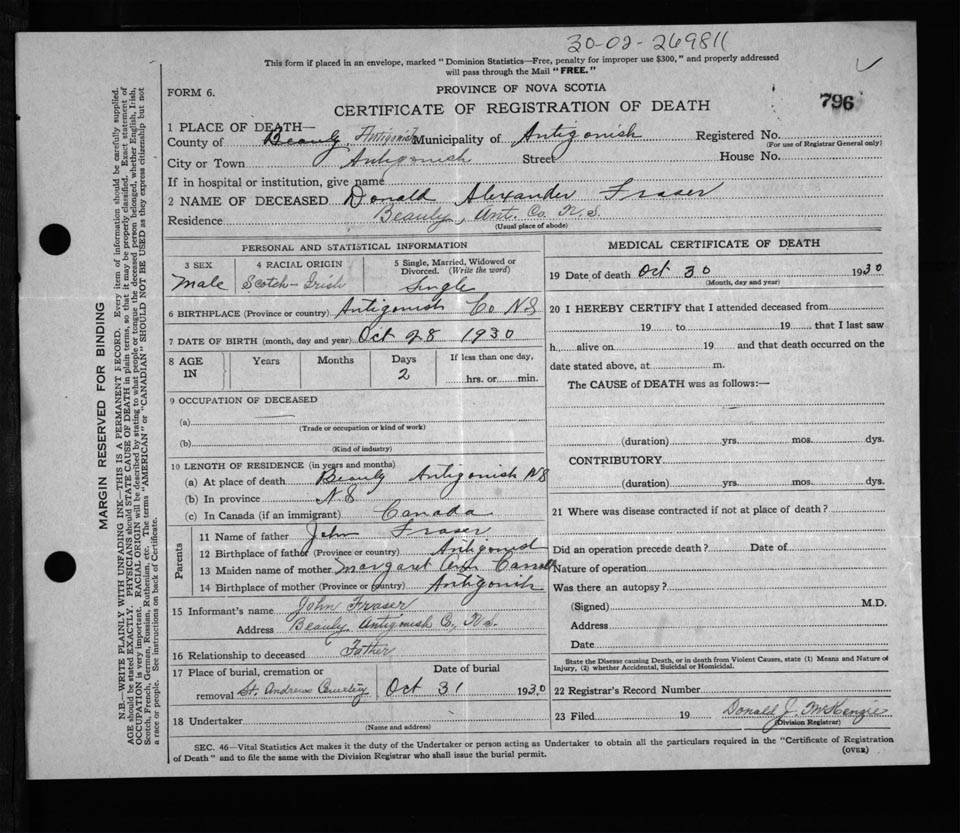 30-02-269811
This form if placed in an envelope, marked "Dominion Statistics—Free, penalty for improper use $300," and properly addressed
will pass through the Mail "FREE."
PROVINCE OF NOVA SCOTIA
FORM 6.
CERTIFICATE OF REGISTRATION OF DEATH
796
1 PLACE OF DEATH—
County of Beauly Antigonish Municipality of Antigonish Registered No.
(For use of Registrar General only)
City or Town Antigonish Street House No.
If in hospital or institution, give name
2 NAME OF DECEASED Donald Alexander Fraser
Residence Beauly, Ant. Co. N.S.
(Usual place of abode)
PERSONAL AND STATISTICAL INFORMATION
3 SEX 4 RACIAL ORIGIN 5 Single, Married, Widowed or
Divorced. (Write the word)
Male Scotch-Irish Single
6 BIRTHPLACE (Province or country) Antigonish Co NS
7 DATE OF BIRTH (month, day and year) Oct 28 1930
8 AGE IN Years Months Days If less than one day,
2 hrs. or min.
9 OCCUPATION OF DECEASED
(a)
(Trade or occupation or kind of work)
(b)
(Kind of industry)
10 LENGTH OF RESIDENCE (in years and months)
(a) At place of death Beauly Antigonish NS
(b) In province NS
(c) In Canada (if an immigrant) Canada
Parents
11 Name of father John Fraser
12 Birthplace of father (Province or country) Antigonish
13 Maiden name of mother Margaret Ann
14 Birthplace of mother (Province or country) Antigonish
15 Informant's name John Fraser
Address Beauly Antigonish Co, N.S.
16 Relationship to deceased Father
17 Place of burial, cremation or Date of burial
removal St. Andrews Cemetery Oct 31 1930
18 Undertaker
(Name and address)
MEDICAL CERTIFICATE OF DEATH
19 Date of death Oct 30 1930
(Month, day and year)
20 I HEREBY CERTIFY that I attended deceased from
19 to 19 that I last saw
h alive on 19 and that death occurred on the
date stated above, at m.
The CAUSE of DEATH was as follows:—
(duration) yrs. mos. dys.
CONTRIBUTORY
(duration) yrs. mos. dys.
21 Where was disease contracted if not at place of death?
Did an operation precede death? Date of
Nature of operation
Was there an autopsy?
(Signed) M.D.
Address
Date
State the Disease causing Death, or in death from Violent Causes, state (1) Means and Nature of
Injury, (2) whether Accidental, Suicidal or Homicidal.
22 Registrar's Record Number
23 Filed 19 Donald J. McKenzie
(Division Registrar)
SEC. 46—Vital Statistics Act makes it the duty of the Undertaker or person acting as Undertaker to obtain all the particulars required in the "Certificate of Registration
of Death" and to file the same with the Division Registrar who shall issue the burial permit.
(OVER)
MARGIN RESERVED FOR BINDING
N.B.—WRITE PLAINLY WITH UNFADING INK—THIS IS A PERMANENT RECORD. Every item of information should be carefully supplied.
AGE should be stated EXACTLY. PHYSICIANS should STATE CAUSE OF DEATH in plain terms, so that it may be properly classified. Exact statement of
OCCUPATION is very important. RACIAL ORIGIN will be described by stating to what people or tongue the deceased person belonged, whether English, Irish,
Scotch, French, German, Russian, Ruthenian, etc. The terms "AMERICAN" or "CANADIAN" SHOULD NOT BE USED as they express citizenship but not
a race or people. See instructions on back of Certificate.